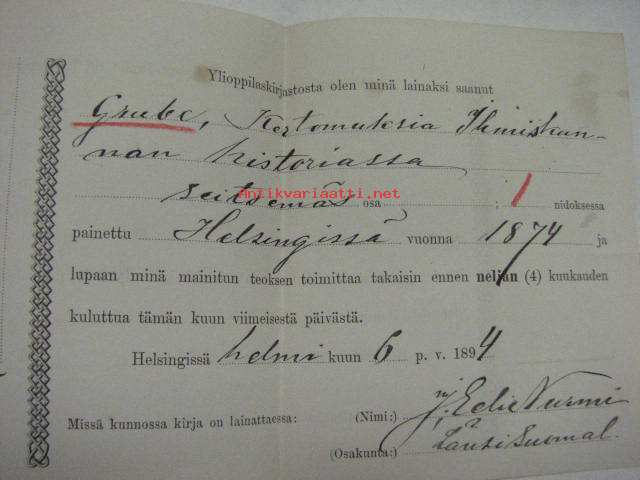 Ylioppilaskirjastosta olen minä lainaksi saanut
Grube, Kertomuksia Ihmiskun-
nan historiassa
Antikvariaatti.net
seitsemäs osa ; 1 nidoksessa
painettu Helsingissä vuonna 1874 ja
lupaan minä mainitun teoksen toimittaa takaisin ennen neljän (4) kuukauden
kuluttua tämän kuun viimeisestä päivästä.
Helsingissä helmi kuun 6 p. v. 1894
Missä kunnossa kirja on lainattaessa: (Nimi:) Nurmi
(Osakunta:) LänsiSuomal.